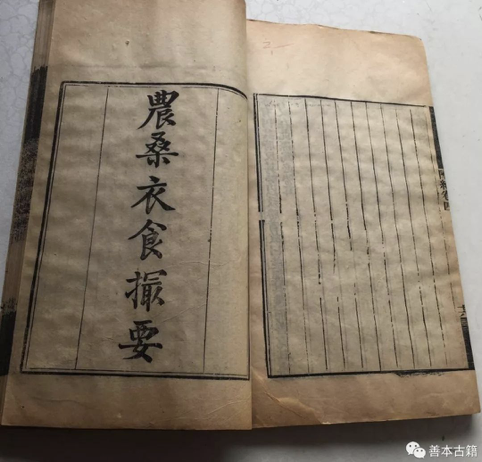 農桑衣食撮要
善本古籍